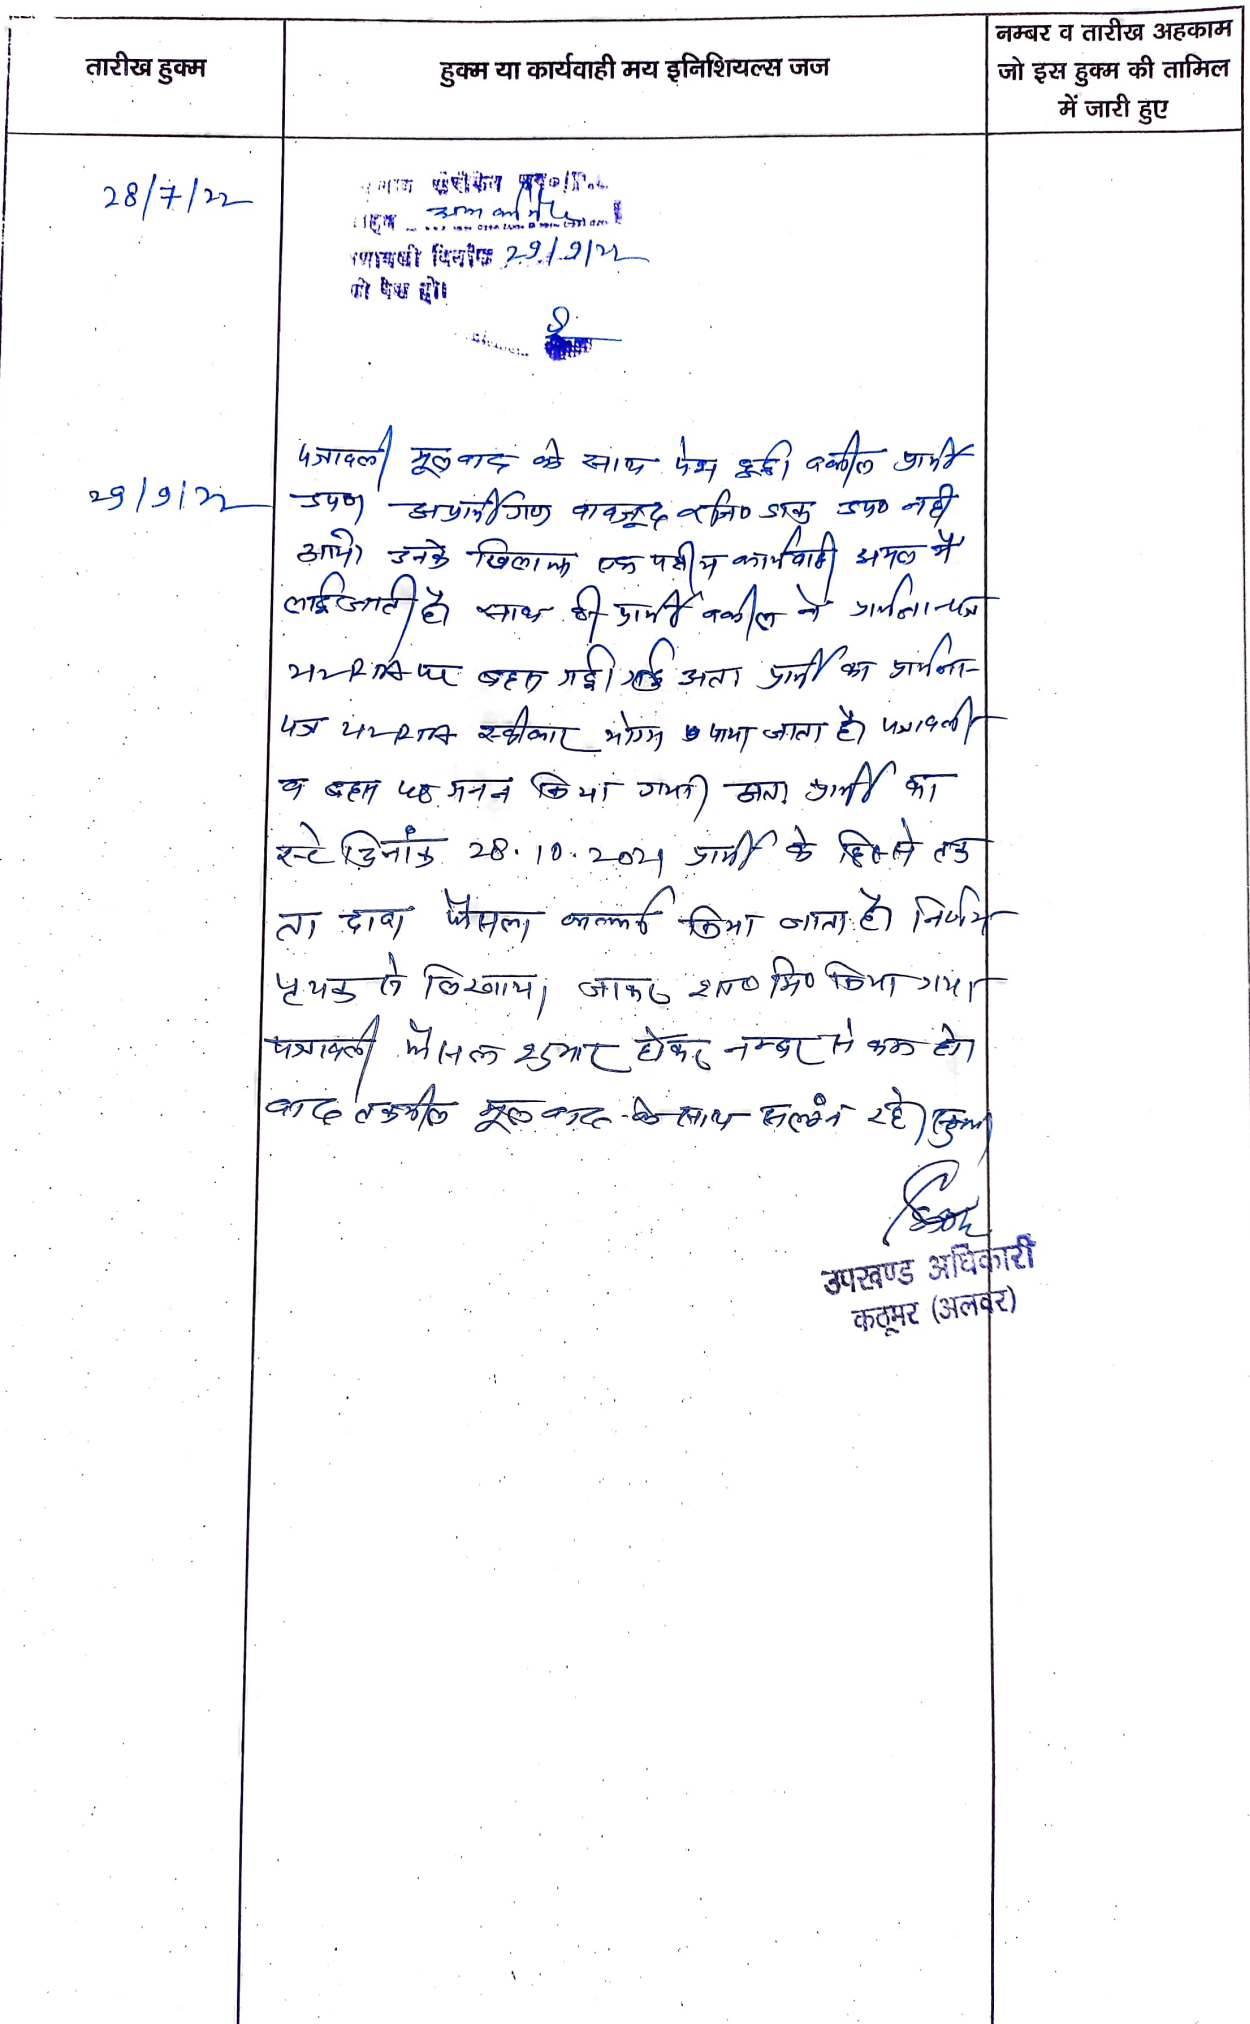 तारीख हुक्म
हुक्म या कार्यवाही मय इनिशियल्स जज
नम्बर व तारीख अहकाम
जो इस हुक्म की तामिल
में जारी हुए
28/7/22
दिनांक 29/9/22
को पेश हो।
29/9/22
पत्रावली मूलवाद के साथ पेश हुई। वकील प्रार्थी
उप० अप्रार्थीगण बावजूद रजि० डाक उप० नही
आये। उनके खिलाफ एक पक्षीय कार्यवाही अमल में
लाई जाती है। साथ ही प्रार्थी वकील ने प्रार्थना-पत्र
पर बहस गई। अतः प्रार्थी का प्रार्थना-
पत्र स्वीकार योग्य पाया जाता है। पत्रावली
व बहस पर मनन किया गया। अतः प्रार्थी का
स्टे दिनांक 28.10.2021 प्रार्थी के हिस्से तक
ता दावा फैसला किया जाता है। निर्णय
पृथक से लिखाया जाकर शा० मि० किया गया।
पत्रावली फैसल शुमार होकर नम्बर से कम हो।
बाद तकमील मूलवाद के साथ सलंग्न रहे।
उपखण्ड अधिकारी
कठूमर (अलवर)